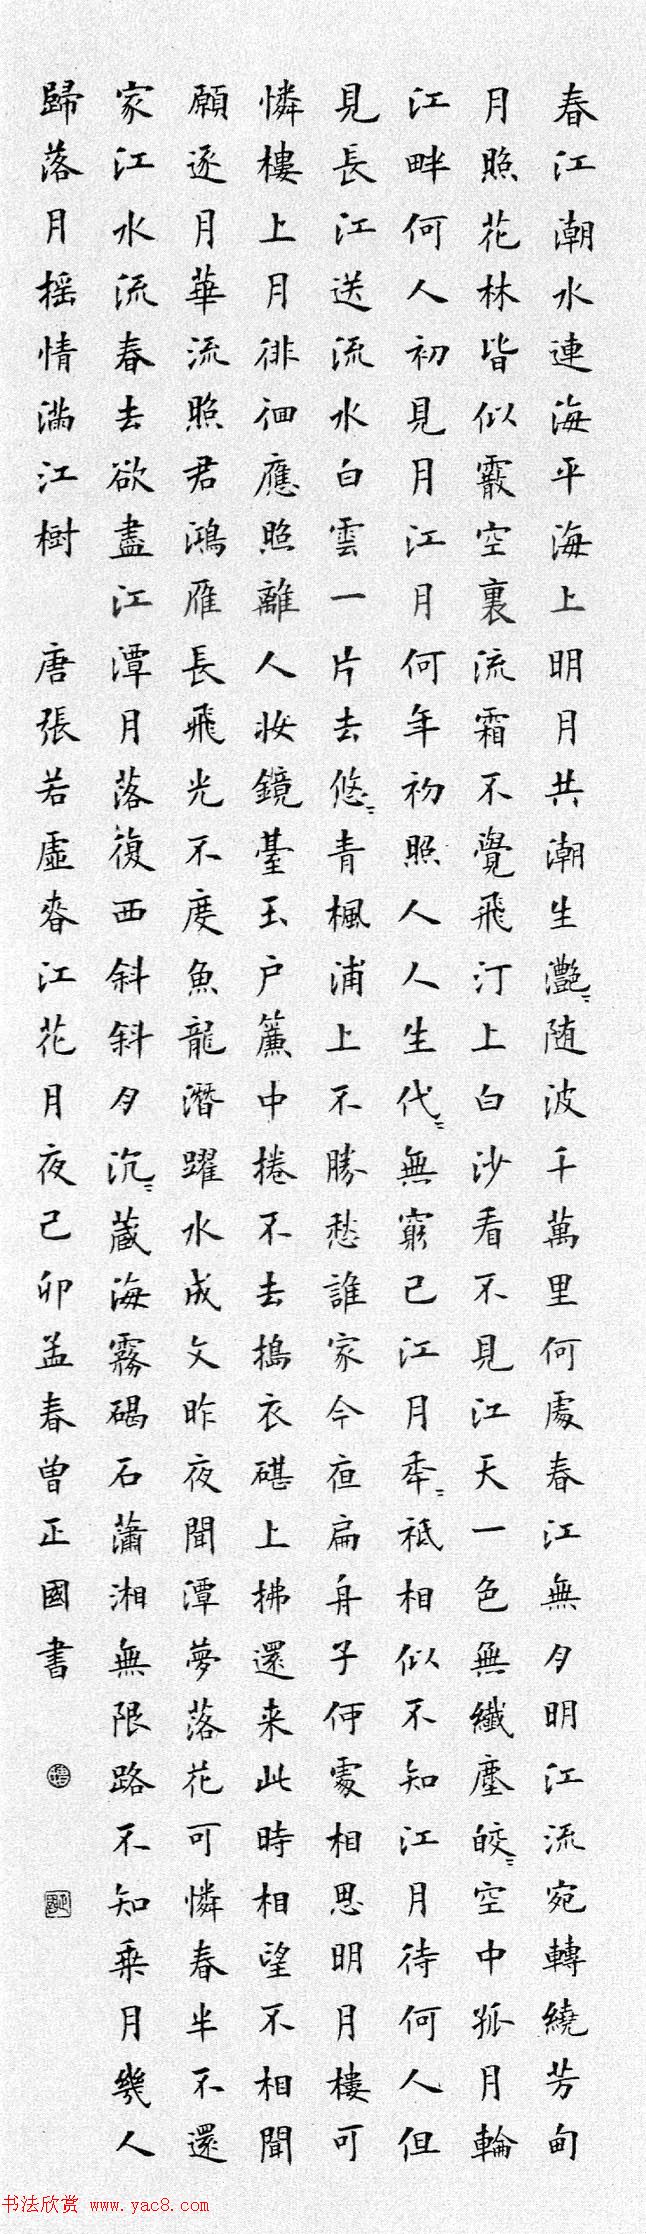 春江潮水連海平海上明月共潮生灧〻随波千萬里何處春江無月明江流宛轉繞芳甸
月照花林皆似霰空裏流霜不覺飛汀上白沙看不見江天一色無纖塵皎〻空中孤月輪
江畔何人初見月江月何年初照人人生代〻無窮已江月年〻祇相似不知江月待何人但
見長江送流水白雲一片去悠〻青楓浦上不勝愁誰家今夜扁舟子何處相思明月樓可
憐樓上月徘徊應照離人妝鏡臺玉戶簾中捲不去搗衣碪上拂還来此時相望不相聞
願逐月華流照君鴻雁長飛光不度魚龍潛躍水成文昨夜聞潭夢落花可憐春半不還
家江水流春去欲盡江潭月落復西斜斜月沉〻藏海霧碣石蕭湘無限路不知乘月幾人
歸落月摇情滿江樹 唐張若虛春江花月夜己卯孟春曾正國書
书法欣赏 www.yac8.com